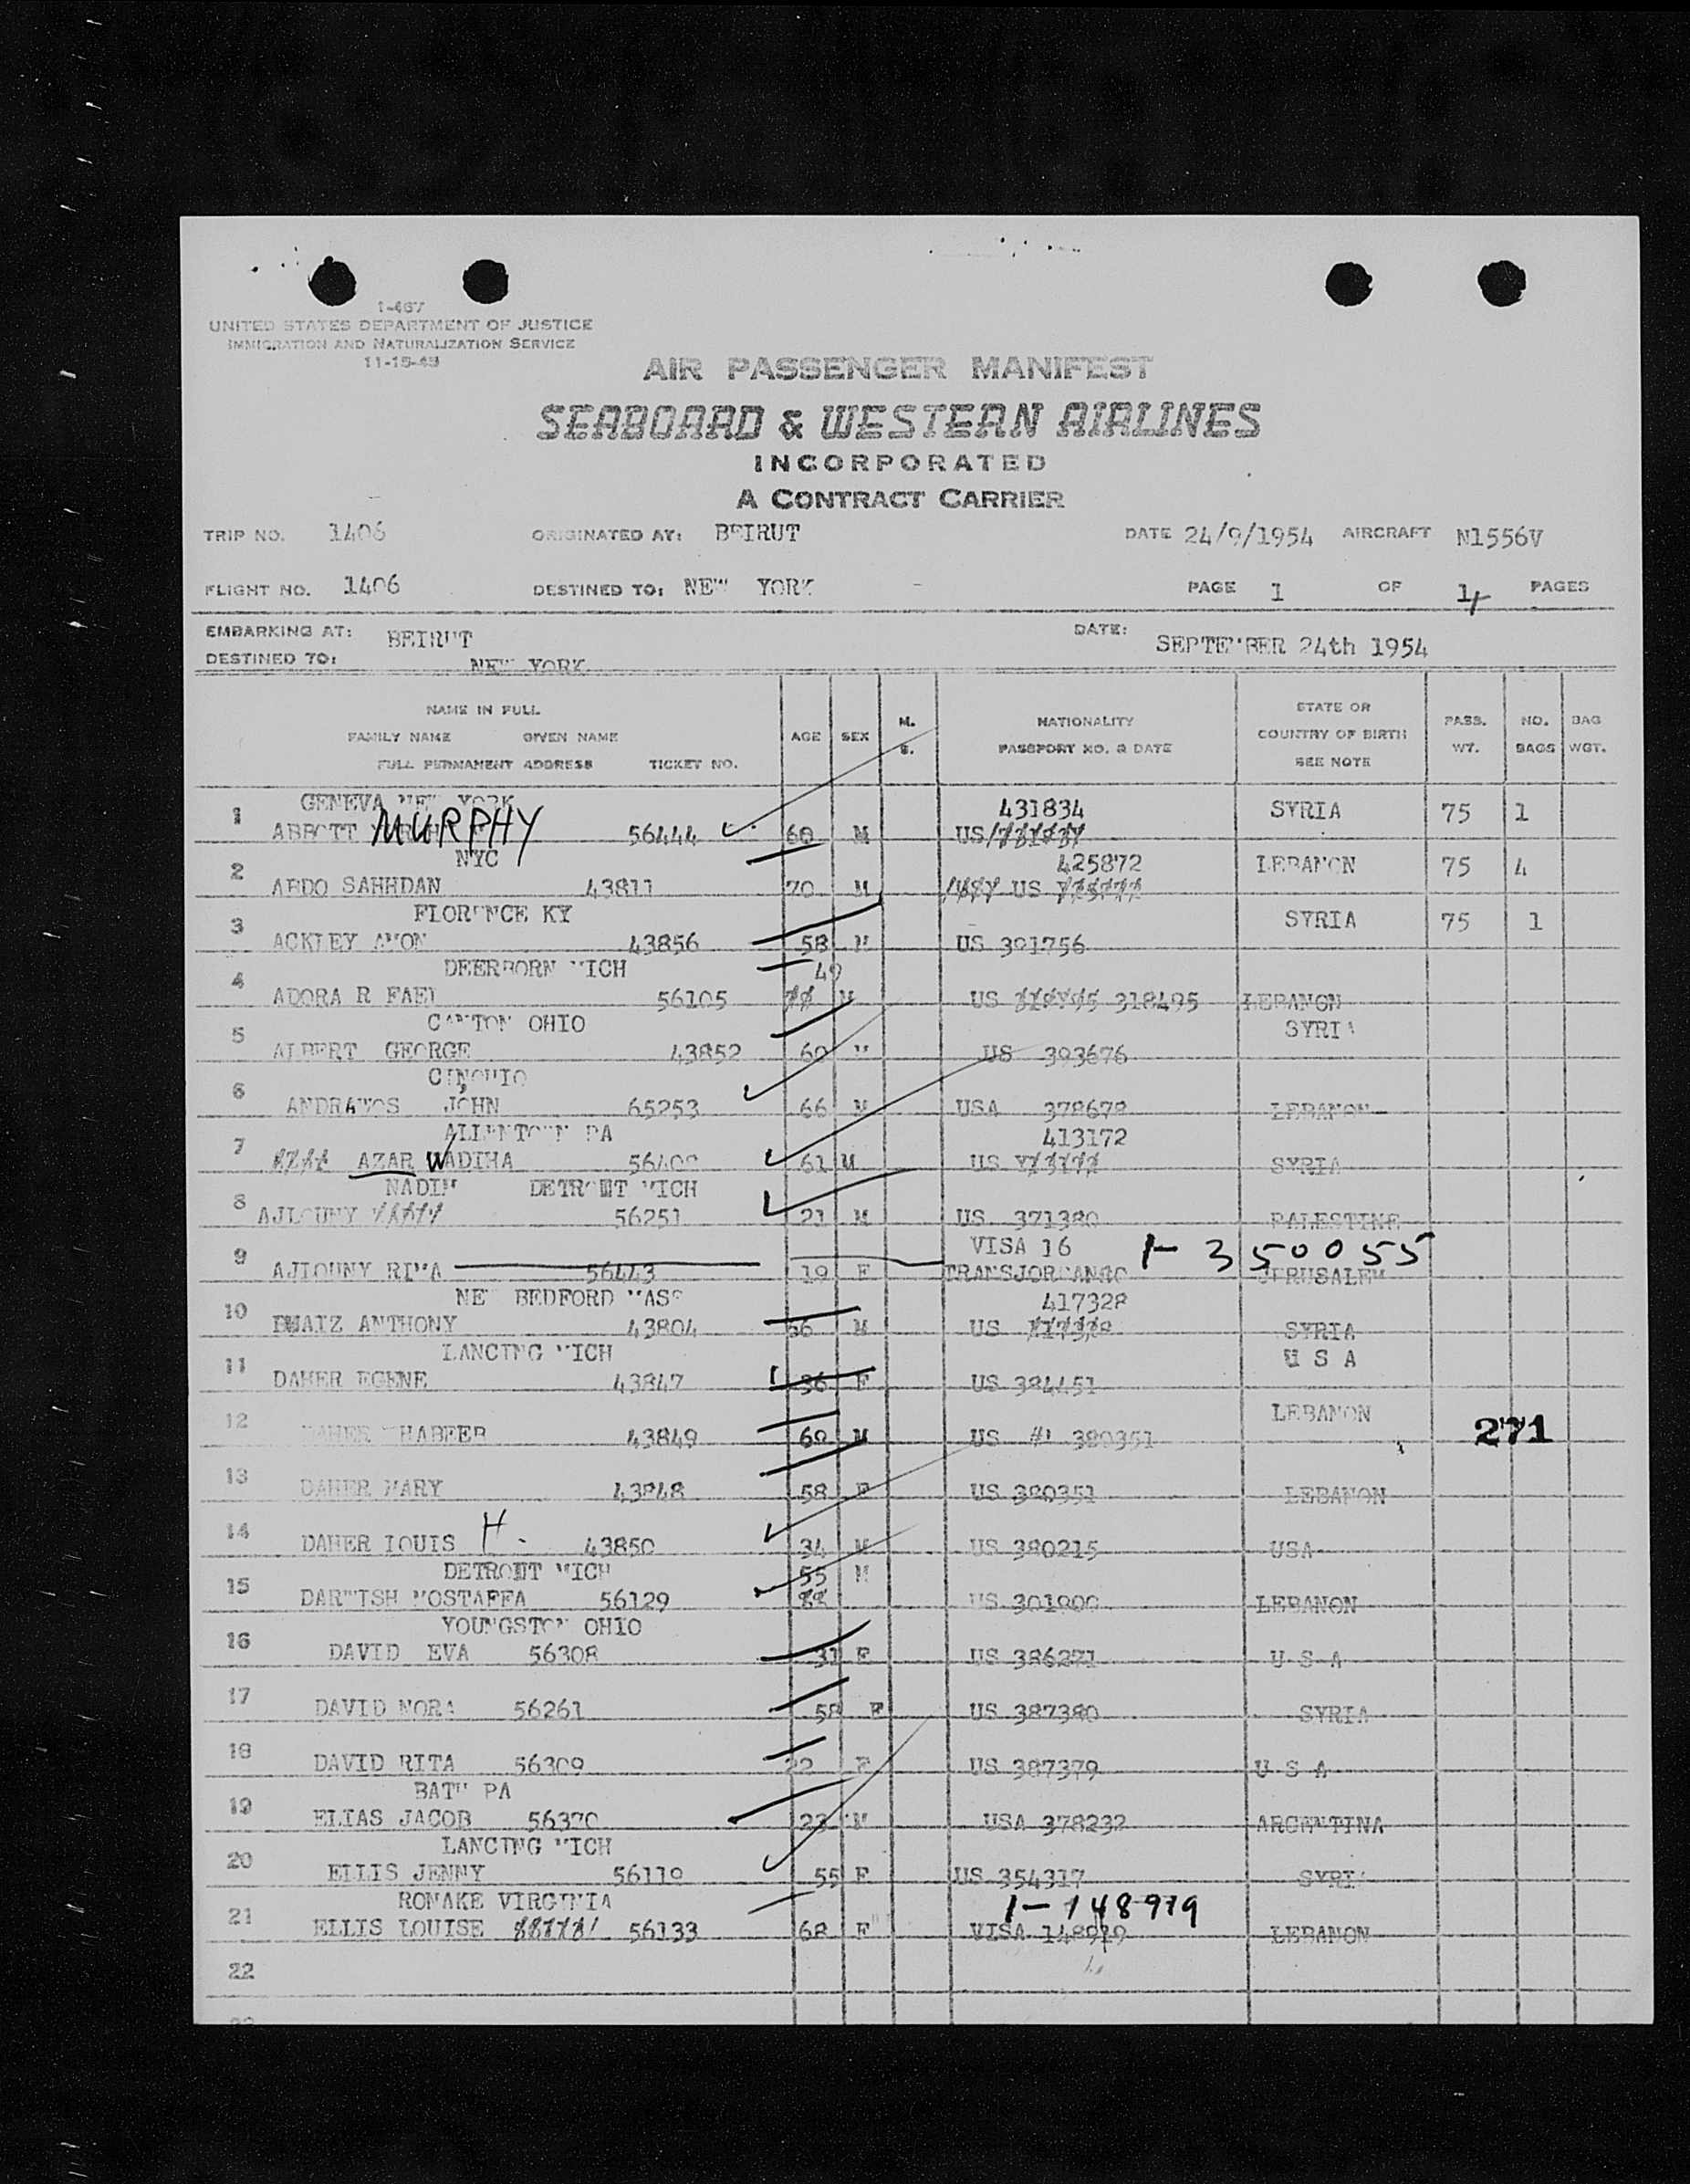 1-467
UNITED STATES DEPARTMENT OF JUSTICE
IMMIGRATION AND NATURALIZATION SERVICE
11-15-43
AIR PASSENGER MANIFEST
SEABOARD & WESTERN AIRLINES
INCORPORATED
A CONTRACT CARRIER
TRIP NO. 1406 ORIGINATED AT: BEIRUT DATE 24/9/1954 AIRCRAFT N1556V
FLIGHT NO. 1406 DESTINED TO: NEW YORK PAGE 1 OF 4 PAGES
EMBARKING AT: BEIRUT DATE: SEPTEMBER 24th 1954
DESTINED TO: NEW YORK
NAME IN FULL
FAMILY NAME GIVEN NAME
FULL PERMANENT ADDRESS TICKET NO.
AGE SEX M. S.
NATIONALITY
PASSPORT NO. & DATE
STATE OR
COUNTRY OF BIRTH
SEE NOTE
PASS. WT. NO. BAGS BAG WGT.
GENEVA NEW YORK 431834 SYRIA 75 1
1 ABBOTT MURPHY 56444 60 M US
NYC 425872 LEBANON 75 4
2 ABDO SAHHDAN 43811 70 M US
FLORENCE KY SYRIA 75 1
3 ACKLEY AMON 43856 58 M US 391756
DEERBORN MICH 49
4 ADORA R FAEL 56105 M US 318495 LEBANON
CANTON OHIO SYRIA
5 ALBERT GEORGE 43852 60 M US 393676
6 ANDRAWOS JOHN 65253 66 M USA 378678 LEBANON
ALLENTOWN PA 413172
7 AZAR WADIHA 61 M US SYRIA
NADIM DETROIT MICH
8 AJLOUNY 56251 21 M US 371380 PALESTINE
VISA 16 1-350055
9 AJLOUNY RIMA 56443 19 F JERUSALEM
NEW BEDFORD MASS 417328
10 ANTHONY 43804 66 M US SYRIA
LANCING MICH U S A
11 DAHER EGENE 43847 36 F US 384451
LEBANON
12 DAHER 43849 60 M US 380351 271
13 DAHER MARY 43848 58 F US 380351 LEBANON
14 DAHER LOUIS H. 43850 34 M US 380215 USA
DETROIT MICH 55 M
15 DARWISH MOSTAFFA 56129 US 301900 LEBANON
YOUNGSTOWN OHIO
16 DAVID EVA 56308 31 F US 386271 U S A
17 DAVID NORA 56261 58 F US 387380 SYRIA
18 DAVID RITA 56309 22 F US 387379 U S A
BATH PA
19 ELIAS JACOB 56370 23 M USA 378232 ARGENTINA
LANCING MICH
20 ELLIS JENNY 56119 55 F US 354317 SYRIA
RONAKE VIRGINIA 1-148919
21 ELLIS LOUISE 56133 68 F VISA 148919 LEBANON
22